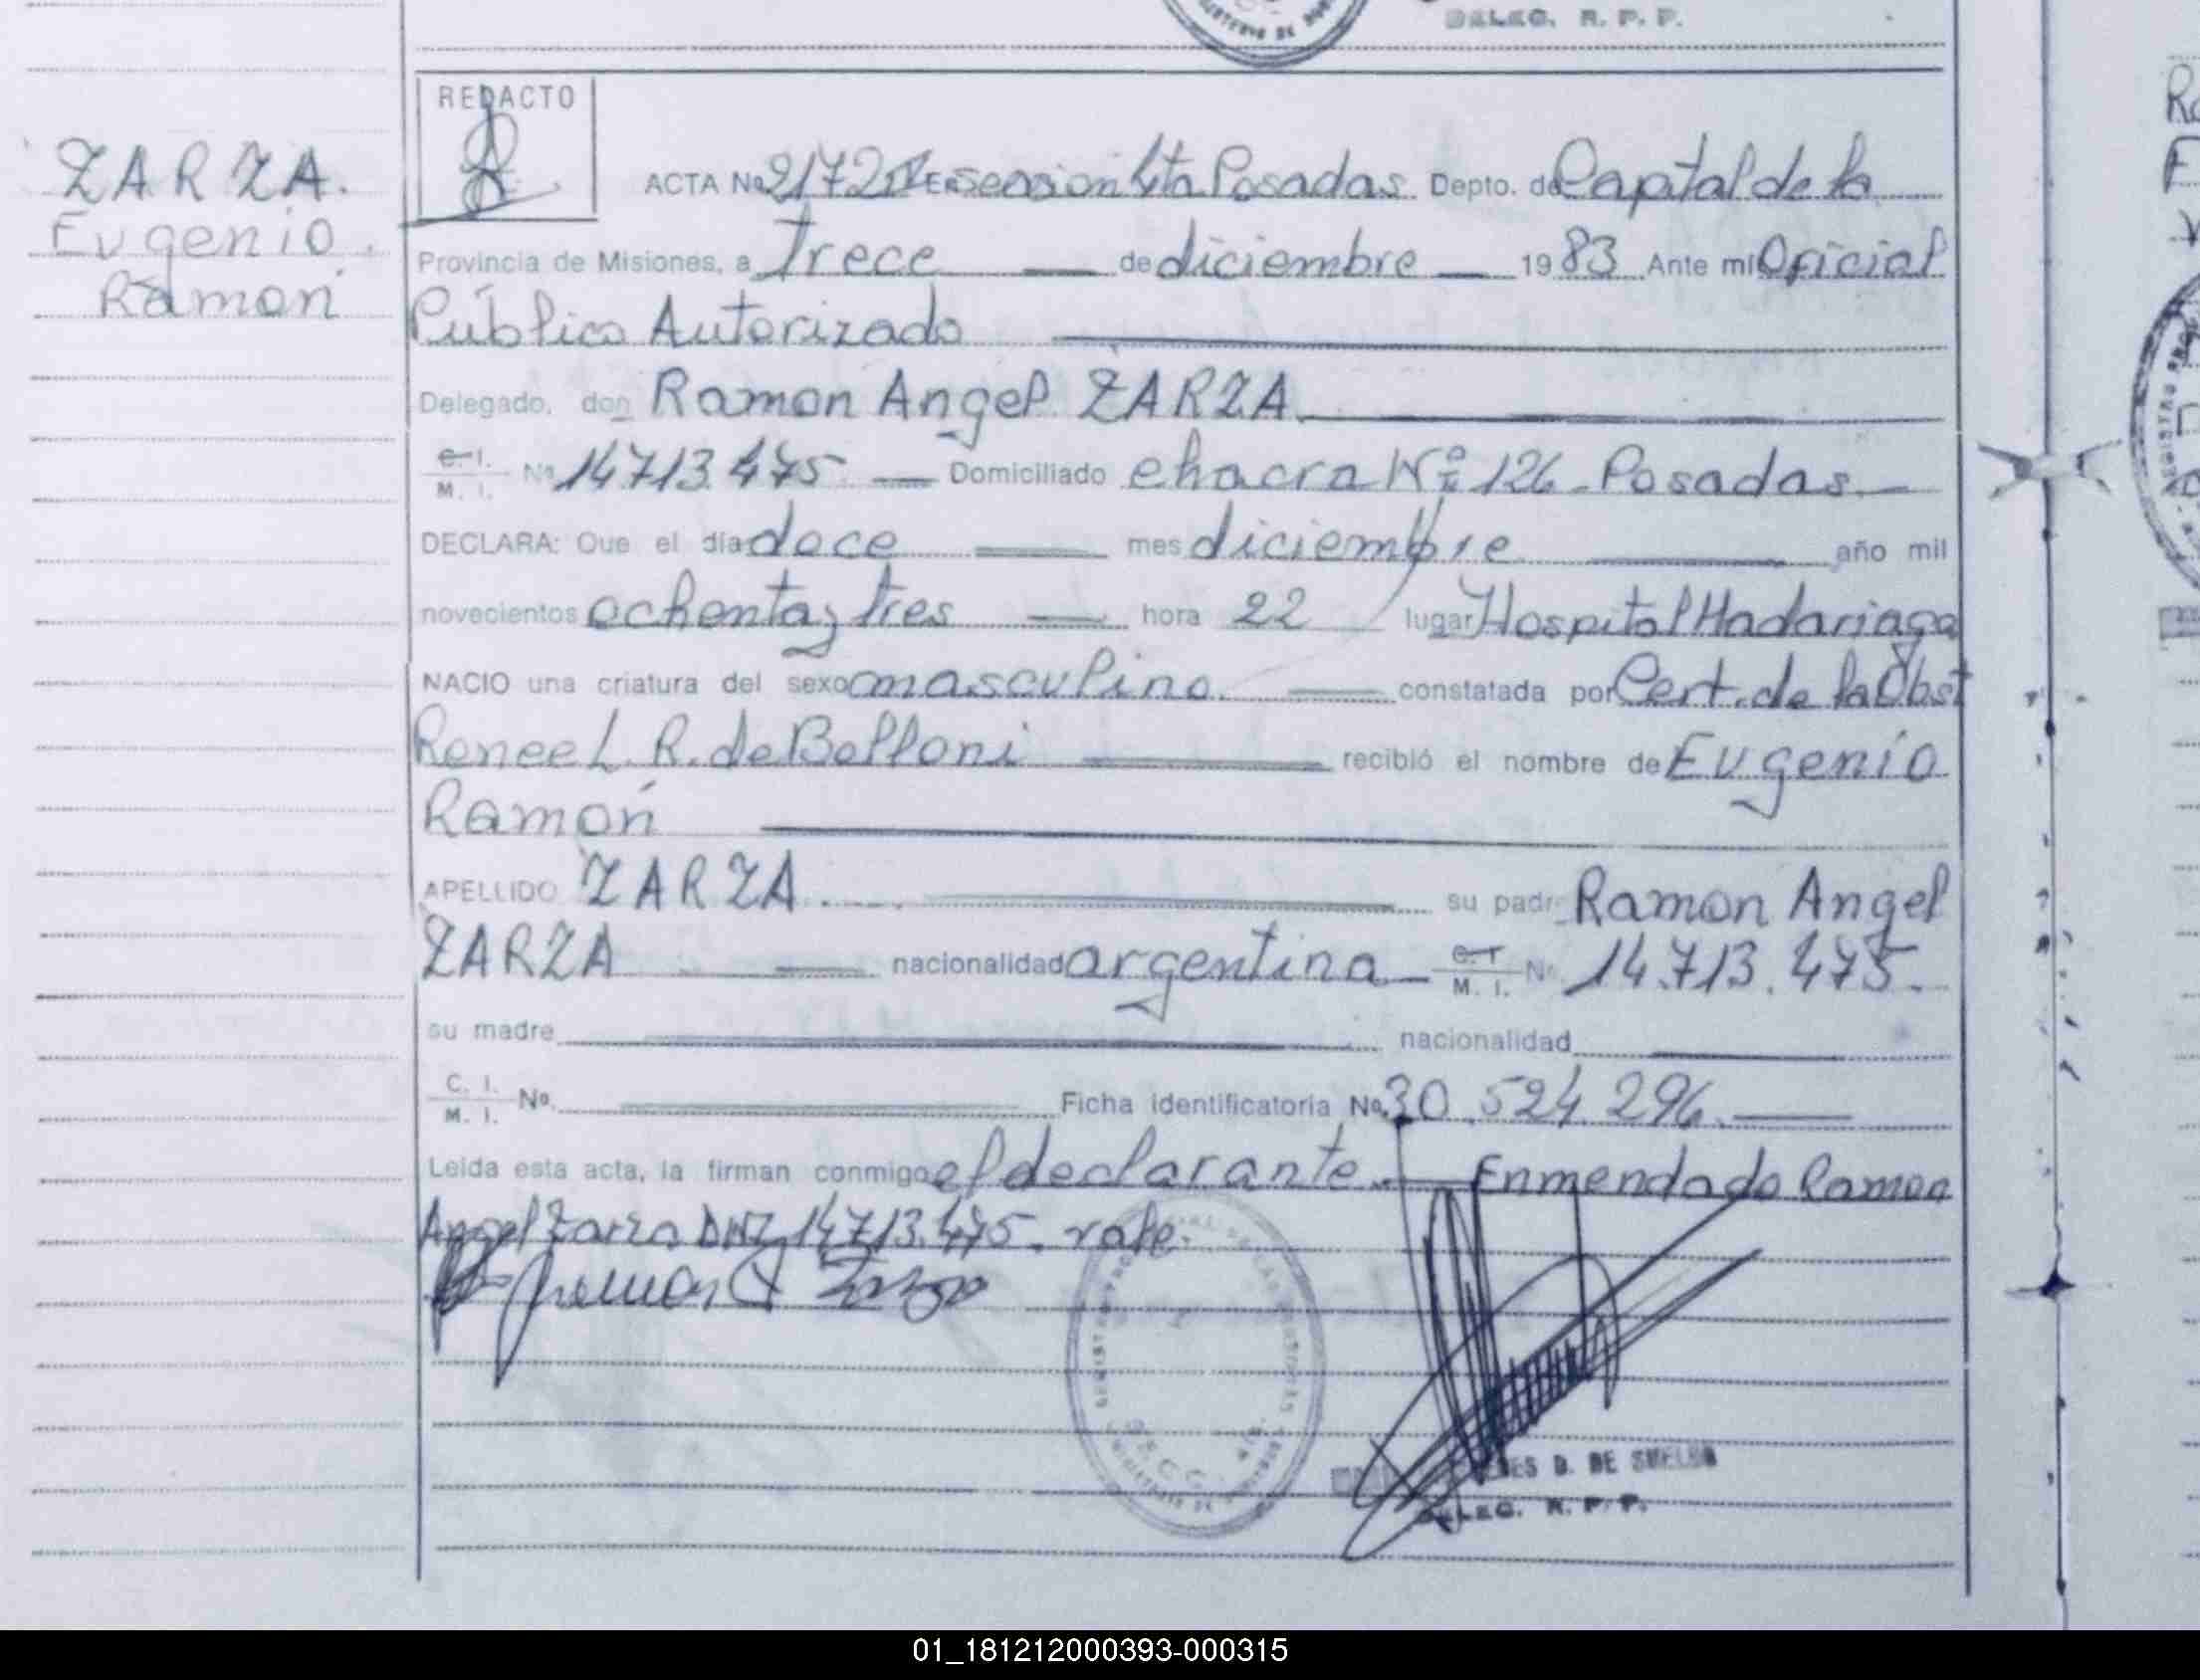 DELEG. R. P. P.
REDACTO
ZARZA.
Eugenio
Ramón
ACTA No 2172 En seccion 4ta Posadas Depto. de Capital de la
Provincia de Misiones, a trece de diciembre 1983 Ante mi Oficial
Público Autorizado
Delegado, don Ramon Angel ZARZA
C. I. M. I. No 14.713.475 Domiciliado chacra Nº 126 - Posadas
DECLARA: Que el día doce mes diciembre año mil
novecientos ochenta y tres hora 22 lugar Hospital Madariaga
NACIO una criatura del sexo masculino. constatada por Cert. de la Obst
Renee L. R. de Belloni recibió el nombre de Eugenio
Ramón
APELLIDO ZARZA su padre Ramon Angel
ZARZA nacionalidad argentina C. I. M. I. No 14.713.475.
su madre nacionalidad
C. I. M. I. No. Ficha identificatoria No. 30.524.296.
Leida esta acta, la firman conmigo el declarante. Enmendado Ramon
Angel Zarza DNI 14713.475. vale.
Ramon A Zarza
D. DE SUELDO
DELEG. R. P. P.
01_181212000393-000315